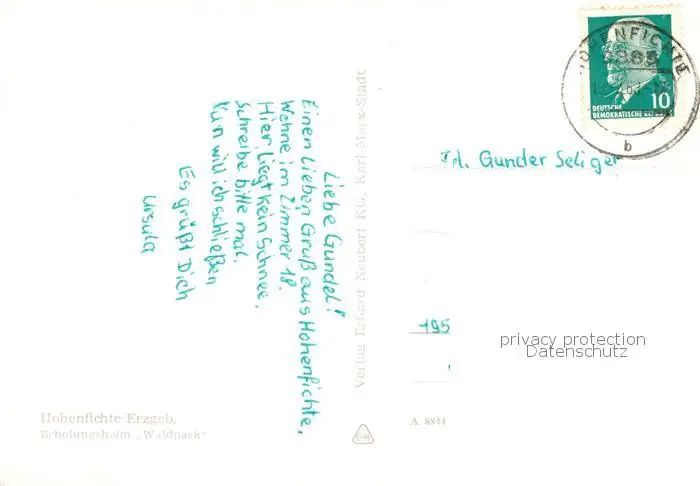 Liebe Gundel!
Einen lieben Gruß aus Hohenfichte.
Wohne im Zimmer 18.
Hier liegt kein Schnee.
Schreibe bitte mal.
Nun will ich schließen
Es grüßt Dich
Ursula
Hohenfichte Erzgeb.
Erholungsheim „Waldpark"
Verlag Erhard Neubert KG, Karl-Marx-Stadt
A 8844
HOHENFICHTE
b
10
DEUTSCHE
DEMOKRATISCHE
Frl. Gunder Seliger
195
privacy protection
Datenschutz